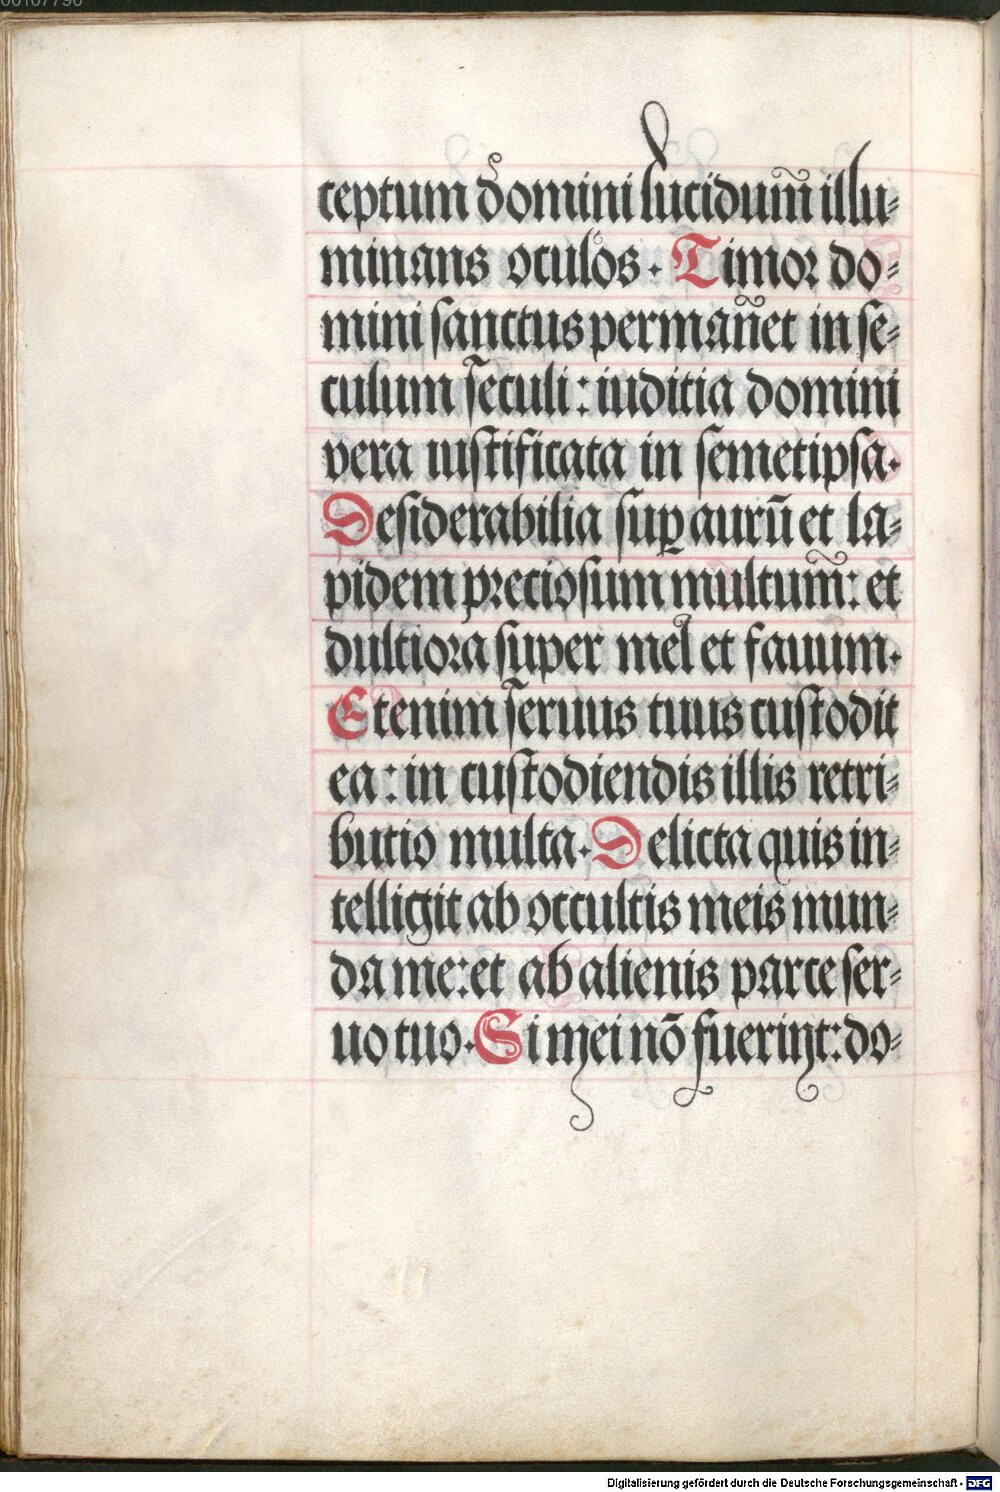 00107790
ceptum domini lucidum̃ illu⸗
minans oculos. Timor do⸗
mini sanctus permañet in se⸗
culum seculi: iuditia domini
vera iustificata in semetipsa.
Desiderabilia suꝑ aurū et la⸗
pidem preciosum multum̃: et
dultiora super mel et fauum.
Etenim seruus tuus custodit
ea: in custodiendis illis retri⸗
butio multa. Delicta quis in⸗
telligit ab occultis meis mun⸗
da me: et ab alienis parce ser⸗
uo tuo. Si mei nō fuerint: do⸗
Digitalisierung gefördert durch die Deutsche Forschungsgemeinschaft - DFG